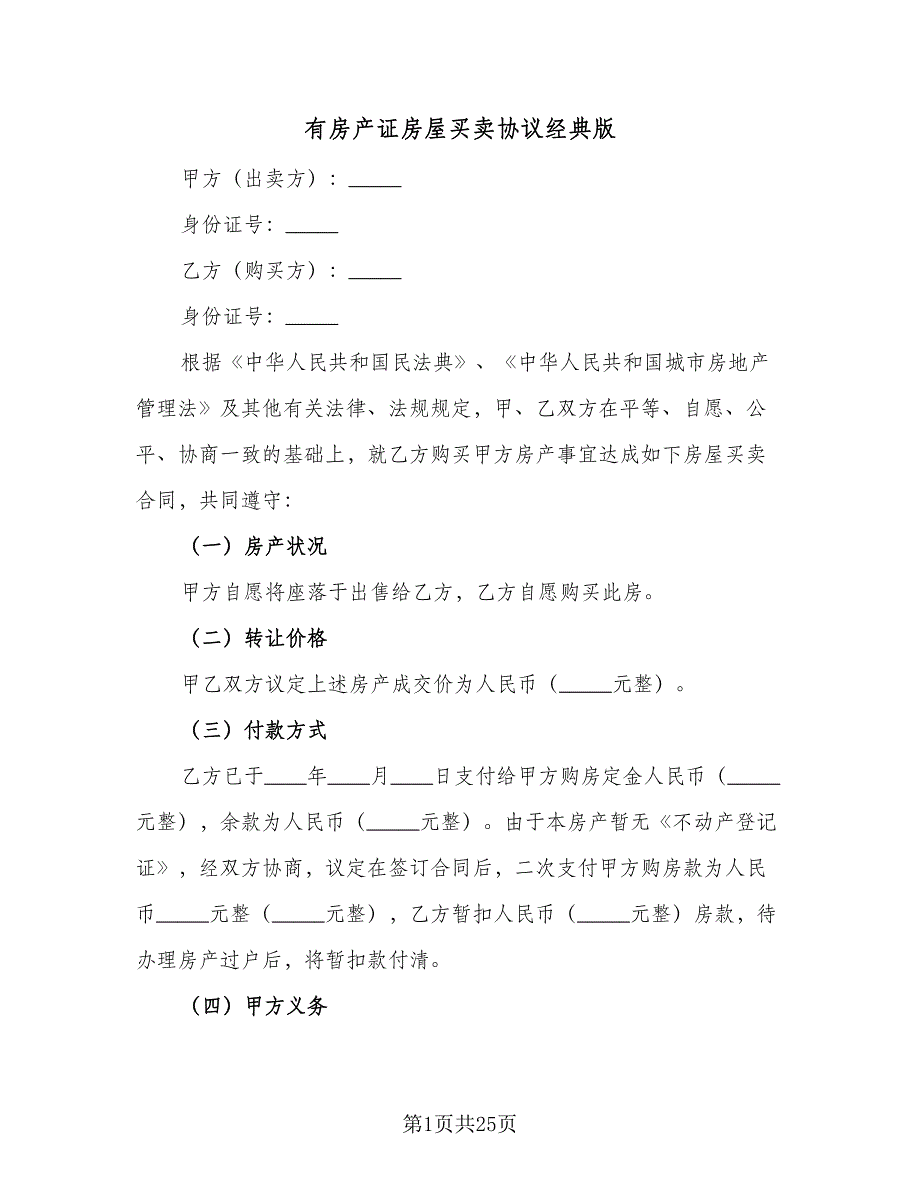 有房产证房屋买卖协议经典版
甲方（出卖方）：_____
身份证号：_____
乙方（购买方）：_____
身份证号：_____
根据《中华人民共和国民法典》、《中华人民共和国城市房地产
管理法》及其他有关法律、法规规定，甲、乙双方在平等、自愿、公
平、协商一致的基础上，就乙方购买甲方房产事宜达成如下房屋买卖
合同，共同遵守：
（一）房产状况
甲方自愿将座落于出售给乙方，乙方自愿购买此房。
（二）转让价格
甲乙双方议定上述房产成交价为人民币（_____元整）。
（三）付款方式
乙方已于____年____月____日支付给甲方购房定金人民币（_____
元整），余款为人民币（_____元整）。由于本房产暂无《不动产登记
证》，经双方协商，议定在签订合同后，二次支付甲方购房款为人民
币_____元整（_____元整），乙方暂扣人民币（_____元整）房款，待
办理房产过户后，将暂扣款付清。
（四）甲方义务
第1页共25页